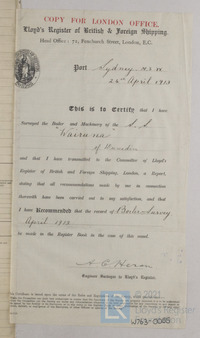 COPY FOR LONDON OFFICE.
Lloyd's Register of British & Foreign Shipping.
Head Office: 71, Fenchurch Street, London, E.C.
Port Sydney N.S.W.
24th April 1913
This is to Certify that I have
Surveyed the Boiler and Machinery of the S.S.
"Wairuna"
of Dunedin
and that I have transmitted to the Committee of Lloyd's
Register of British and Foreign Shipping, London, a Report,
stating that all recommendations made by me in connection
therewith have been carried out to my satisfaction, and that
I have Recommended that the record of Boiler Survey
April 1913
be made in the Register Book in the case of this vessel.
Engineer Surveyor to Lloyd's Register.
© 2021
Lloyd's Register
W763-0085